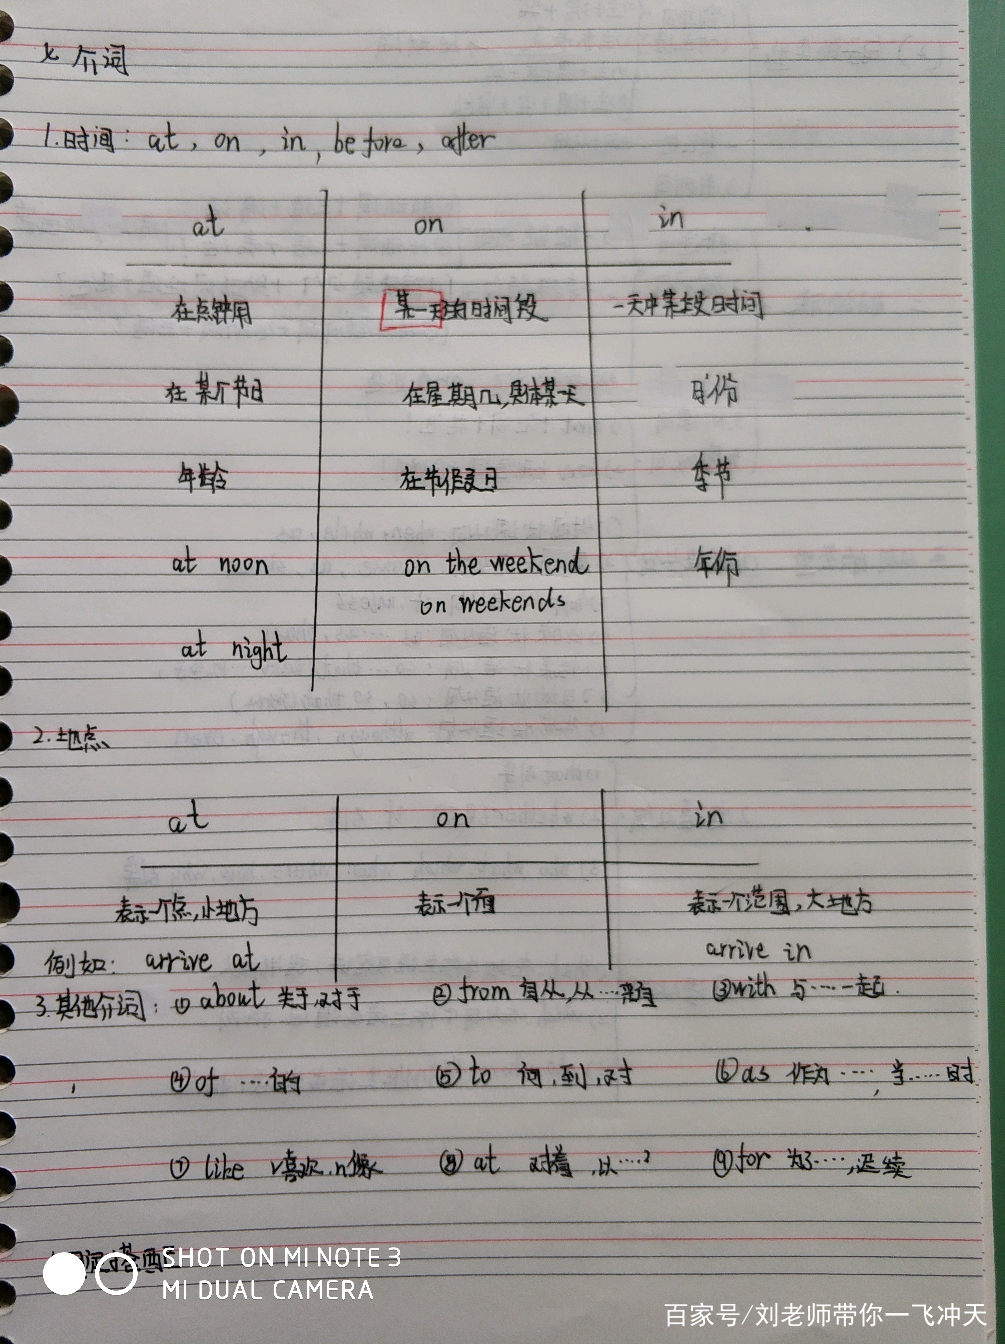 七 介词
1.时间: at, on, in, before, after
at on in
在点钟用 某一天的时间段 一天中某些段时间
在某个节日 在星期几,具体某一天 月份
年龄 在节假日 季节
at noon on the weekend 年份
on weekends
at night
2.地点
at on in
表示一个点,小地方 表示一个面 表示一个范围,大地方
例如: arrive at arrive in
3.其他介词: ① about 关于,对于 ② from 自从,从… ③ with 与……一起.
④ of ……的 ⑤ to 向,到,对 ⑥ as 作为……, 当……时
⑦ like v喜欢. n像 ⑧ at 对着,以…? ⑨ for 为了……,
SHOT ON MI NOTE 3
MI DUAL CAMERA
百家号/刘老师带你一飞冲天